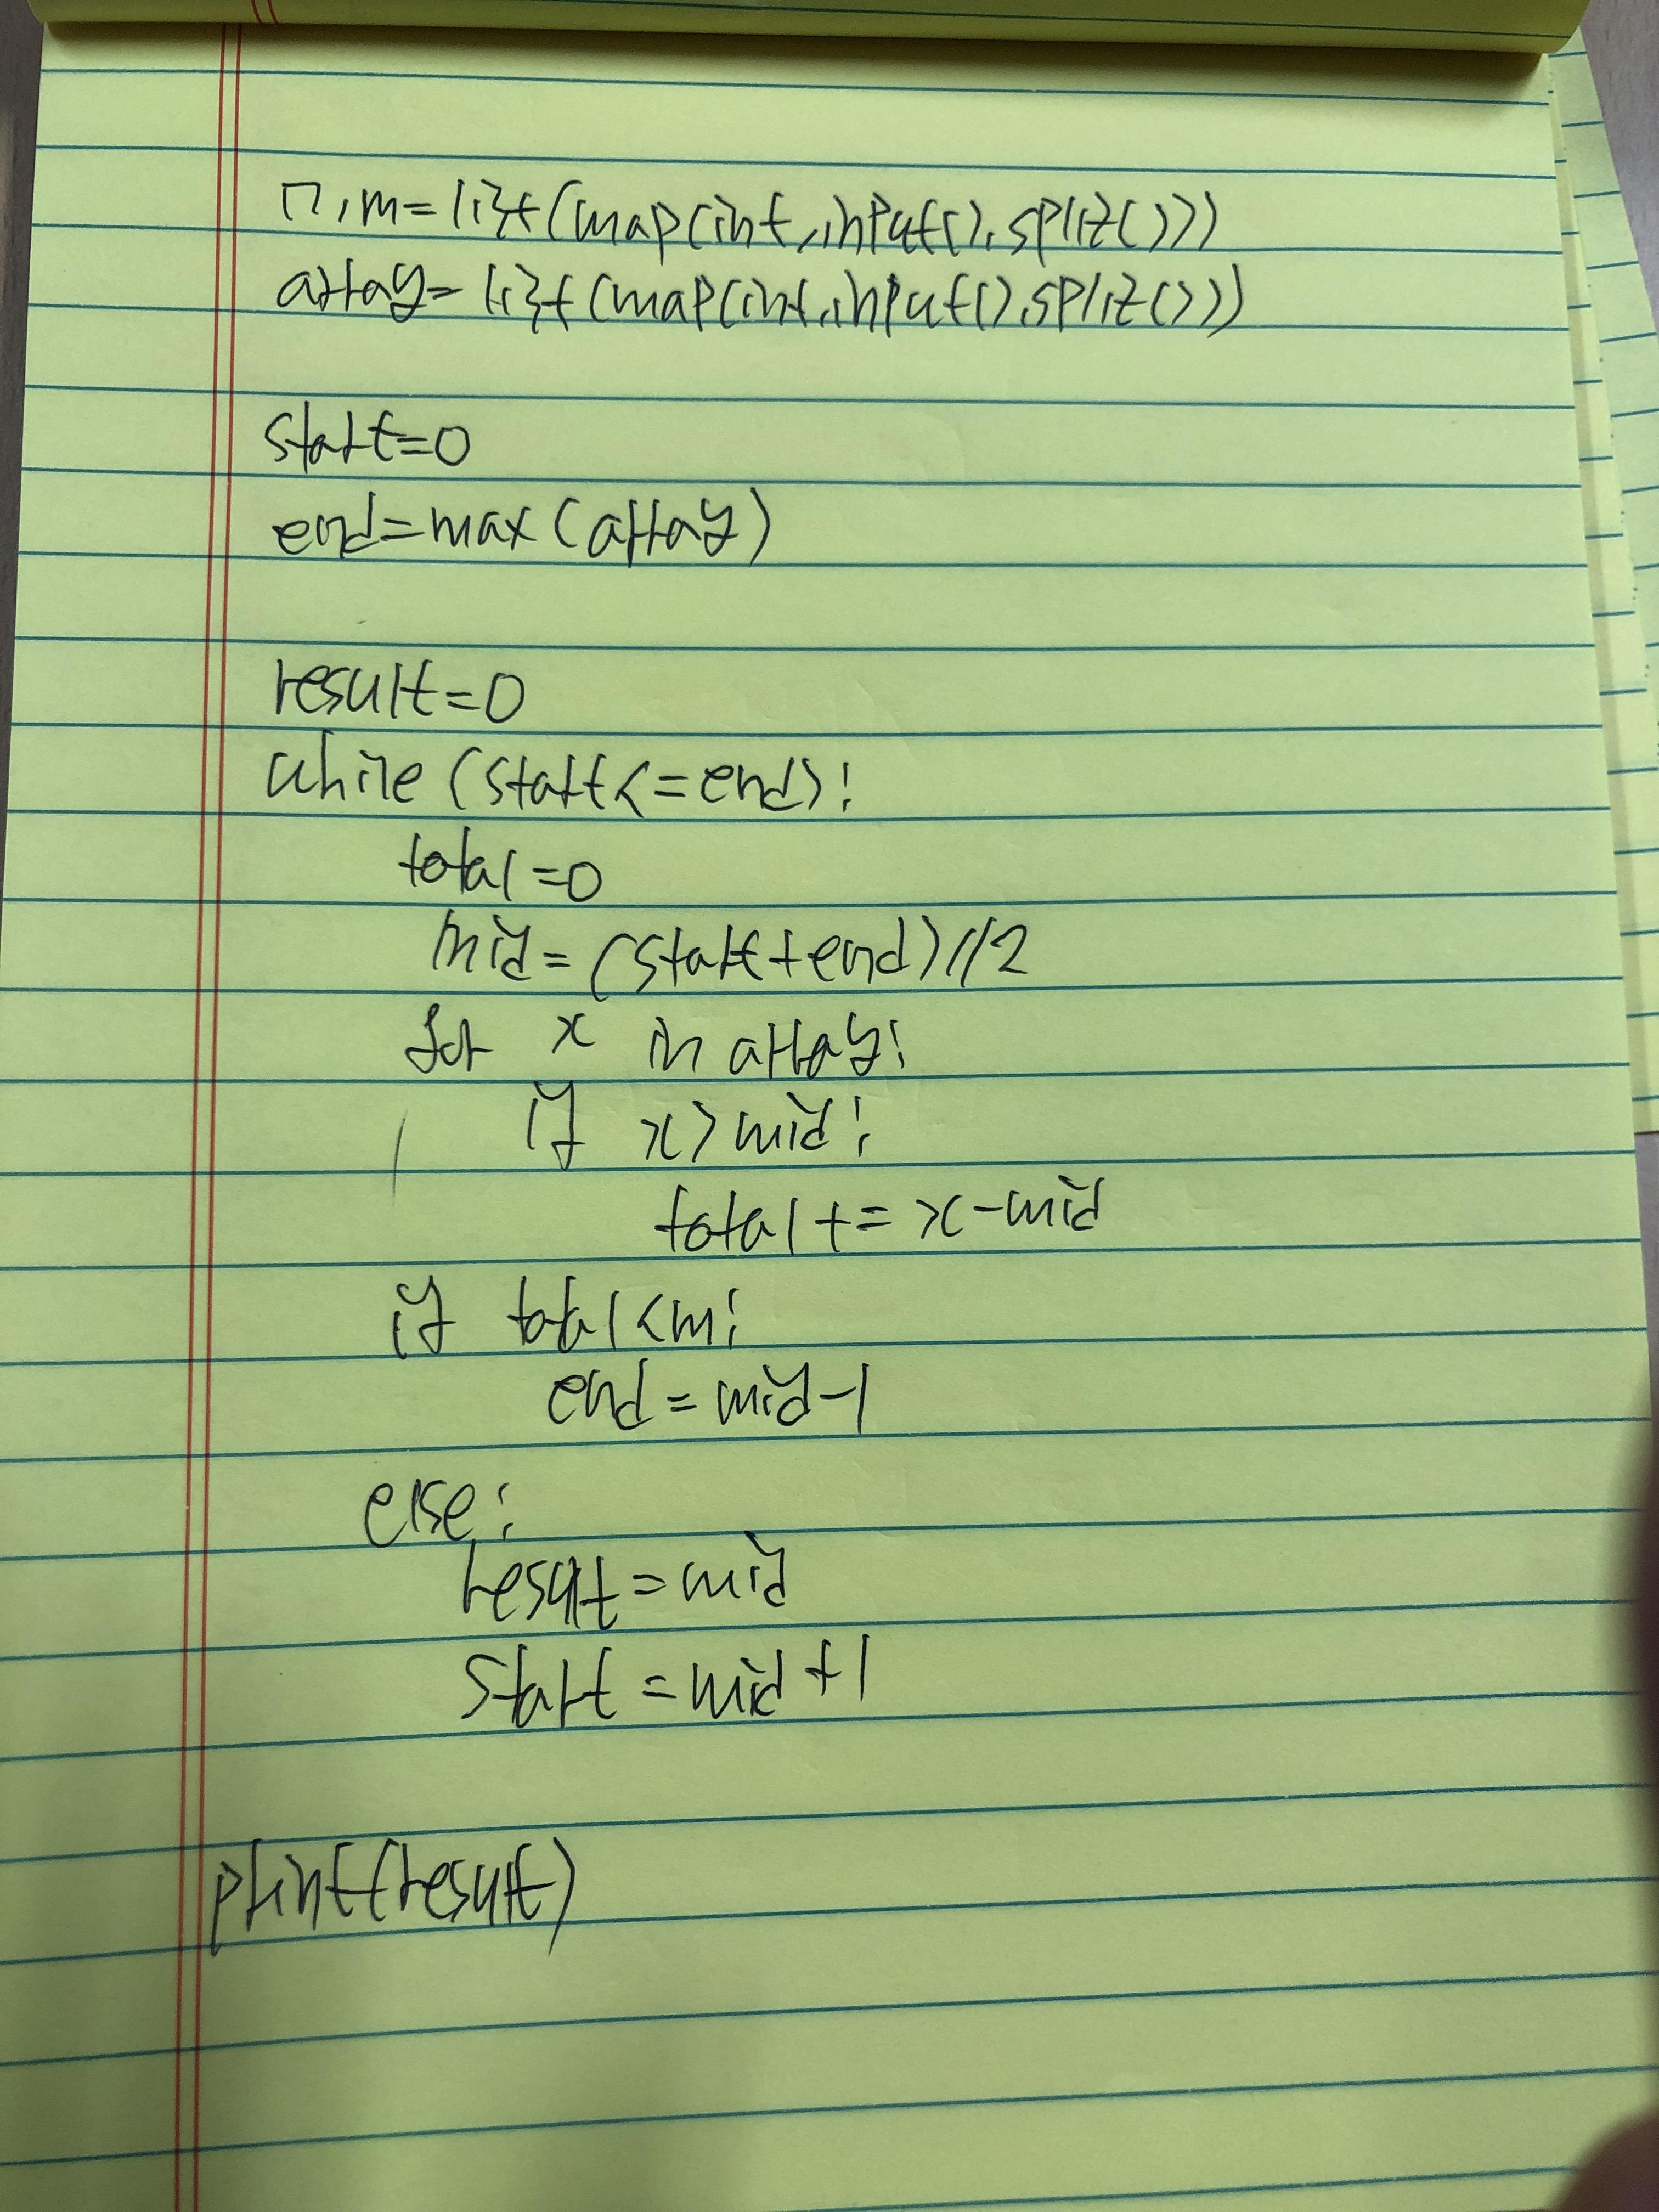 n,m=list(map(int,input().split()))
array=list(map(int,input().split()))
start=0
end=max(array)
result=0
while(start<=end):
total=0
mid=(start+end)//2
for x in array:
if x>mid:
total+=x-mid
if total<m:
end=mid-1
else:
result=mid
start=mid+1
print(result)